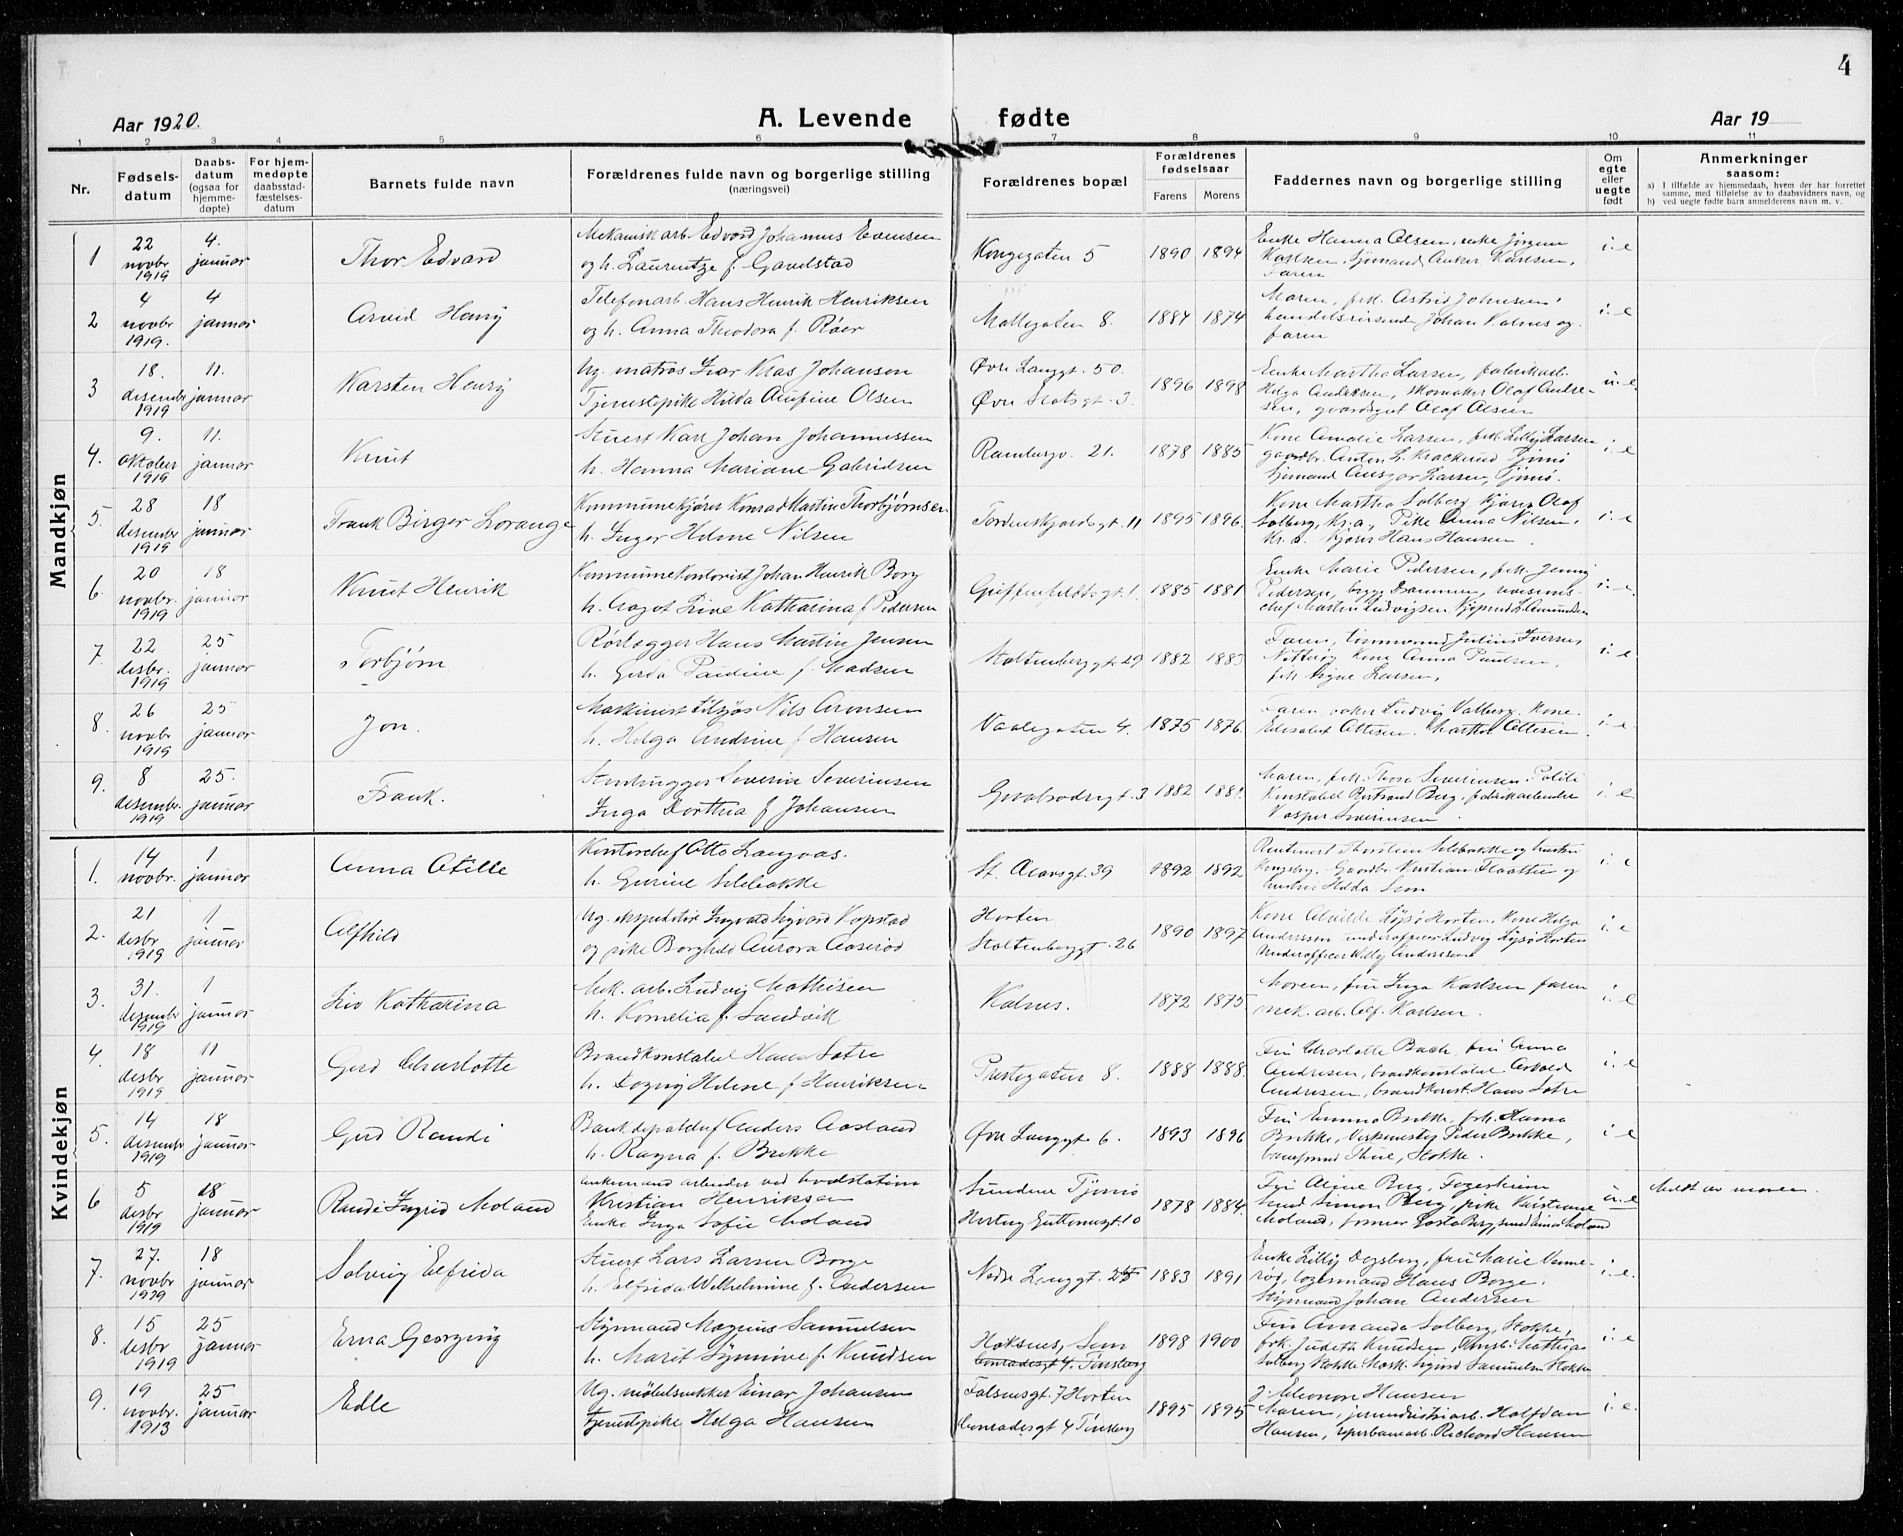 4
Aar 1920.
A. Levende fødte
Aar 19
1 2 3 4 5 6 7 8 9 10 11
Nr.
Fødsels-
datum
Daabs-
datum
(ogsaa for
hjemme-
døpte)
For hjem-
medøpte
daabsstad-
fæstelses-
datum
Barnets fulde navn
Forældrenes fulde navn og borgerlige stilling
(næringsvei)
Forældrenes bopæl
Forældrenes
fødselsaar
Farens Morens
Faddernes navn og borgerlige stilling
Om
egte
eller
uegte
født
Anmerkninger
saasom:
a) I tilfælde av hjemmedaab, hvem der har forrettet
samme, med tilføielse av to daabsvidners navn, og
b) ved uegte fødte barn anmelderens navn m. v.
Mandkjøn
1
22
novbr
1919
4.
januar
Thor Edvard
Mekanisk arb. Edvard Johannes Evensen
og h. Laurentze f. Gavelstad
Kongegaten 5
1890 1894
Enke Hanna Olsen, enke Jørgine
Karlsen, sjømand Anker Karlsen,
Faren
i. e
2
4
novbr
1919.
4
januar
Arvid Henry
Telefonarb. Hans Henrik Henriksen
og h. Anna Theodora f. Røer
Møllegaten 8.
1884 1874
Moren, frk. Astrid Johnsen,
handelsreisende Johan Valnes og
faren
i. e
3
18.
desembr
1919
11.
januar
Karsten Henry
Ug. matros Ivar Klas Johansen
Tjenestepike Hilda Josefine Olsen
Øvre Langgt. 50.
Øvre Slotsgt. 3.
1896 1898
Enke Martha Larsen, fabrikarb.
Helga Andersen, skomaker Olaf Andre-
sen, gaardsgut Olaf Olsen
u. e
4.
9.
oktober
1919
11.
januar
Knut
Stuert Karl Johan Johannessen
h. Hanna Mariane Gabrielsen
Rambergv. 21.
1878 1885
Kone Amalie Larsen, frk. Lilly Larsen
gaardbr. Anton L. Krackerud Tjømø
Sjømand Ansgar Larsen, Tjømø.
i. e
5.
28
desembr
1919
18
januar
Frank Birger Lorange
Kommunekjører Konrad Martin Thorbjørnsen
h. Inger Helene Nilsen
Tordenskjoldsgt. 11
1895 1896.
Kone Martha Solberg, kjører Olaf
Solberg, Kr.a., Pike Anna Nilsen,
Kr. a. Kjører Hans Hansen.
i. e
6.
20
novbr.
1919
18
januar
Knut Henrik
Kommunekontorist Johan Henrik Borg
h. Aagot Live Katharina f. Pedersen
Griffenfeldtsgt. 1.
1885 1881
Enke Marie Pedersen, frk. Jenny
Pedersen,
chef Martin Ludvigsen
i. e
7.
22
desbr.
1919
25
januar
Torbjørn
Rørlægger Hans Martin Jensen
h. Gerda Pauline f. Madsen
Stoltenberggt 29
1882 1883
Faren, tømmermd Julius Ivernes
Nøtterøy Kone Anna Paulsen,
frk Signe Larsen,
i. e
8.
26
novbr
1919
25
januar
Jon.
Maskinist tilsjøs Nils Aronsen
h. Helga Andrine f. Hansen
Vaalegaten 4.
1875 1876
Faren, Ludvig Valberg. Kone.
Elisabet Ottesen. Martha Ottesen
i. e
9.
8
desembr.
1919
25.
januar
Frank.
Stenhugger Severin Severinsen
Inga Dorthea f. Johansen
Graabrødregt. 3
1882 1881.
Moren, frk. Thora Severinsen. Politi
Konstabel Bertrand Berg, fabrikarbeider
Kasper Severinsen.
i. e
Kvindekjøn
1.
14
novbr.
1
januar
Anna Otelie
Kontorchef Otto Langaas.
h. Gurine Selebakke
St. Olavsgt. 39
1892 1892
Rentenist Thorstein Selebakke og hustru
Kongsberg, Gaardbr. Kristian Flaatten og
hustru Hilda Sem
i. e
2.
21
desbr
1919
1
januar
Alfhild
Ug. ekspeditør Ingvald Sigvard Kopstad
og pike Borghild Aurora Aaserød
Horten
Stoltenberggt. 26
1890 1897
Kone Alvilde Løpsø Horten, Kone Helga
Anderssen underofficer Ludvig Løpsø Horten
Underofficer Willy Anderssen
i. e
3.
31.
desembr
1919
1
januar
Liv Katharina
Mek. arb. Ludvig Mathisen
h. Kornelia f. Sandvik
Kalnes.
1872 1875
Moren, fru Inga Karlsen faren
mek. arb. Alf. Karlsen.
i. e
4.
18
desbr
1919
11
januar
Gerd Charlotte
Brandkonstabel Hans Sætre
h. Dagny Helene f. Henriksen
Prestegaten 8.
1888 1888.
Fru Charlotte Bach, fru Anna
Andresen, brandkonstabel Arvid
Andresen, brandkonst. Hans Sætre
i. e
5.
14
desembr
1919
18
januar
Gerd Randi
Bankdepotchef Anders Aasland
h. Ragna f. Brekke
Øvre Langgt. 6.
1893 1896
Fru Emma Brekke, frk. Hanna
Brekke, Verksmester Peder Brekke,
banefmnd Thue, Stokke.
i. e
6
5
desbr
1919
18
januar
Randi Ingrid Moland
enkemand arbeider ved hvalstation
Kristian Henriksen
Enke Inga Sofie Moland
Sundene Tjømø
Hertug Guttormsgt. 10
1878 1884.
Fru Aline Berg, Fogerheim
Smed Simon Berg, pike Kristiane
Moland, former Gøsta Berg, smed Einar Moland
u. e
Meldt av moren.
7.
27.
novbr
1929
18
januar
Solveig Elfrida
Stuert Lars Larsen Borge
h. Elfrida Wilhelmine f. Andersen
Nedre Langgt. 25
1883 1891
Enke Lilly Dogsberg, fru Marie Unne-
rød, Logermand Hans Borge.
Styrmand Johan Andersen
i. e.
8.
15
desbr
1919
25
januar
Erna Georgine
Styrmand Magnus Samuelsen
h. Marit Synnøve f. Knudsen
Hoksnes, Sem
Conradesgt 4. Tønsberg
1898 1900
Fru Amanda Solberg, Stokke,
frk. Judeth Knudsen, Mathias
Solberg Stokke Mask. Sigurd Samuelsen Stokke
i. e
9.
19
novbr.
1913
25
januar
Edle
Ug. møbelsnekker Einar Johansen
Tjenestepike Helga Hansen
Falsensgt. 7 Horten
Conradesgt 4 Tønsberg
1895 1895
f. Eleonor Hansen
Moren, jernindustriarb. Halfdan
Hansen, reperbanearb. Richard Hansen
i. e.